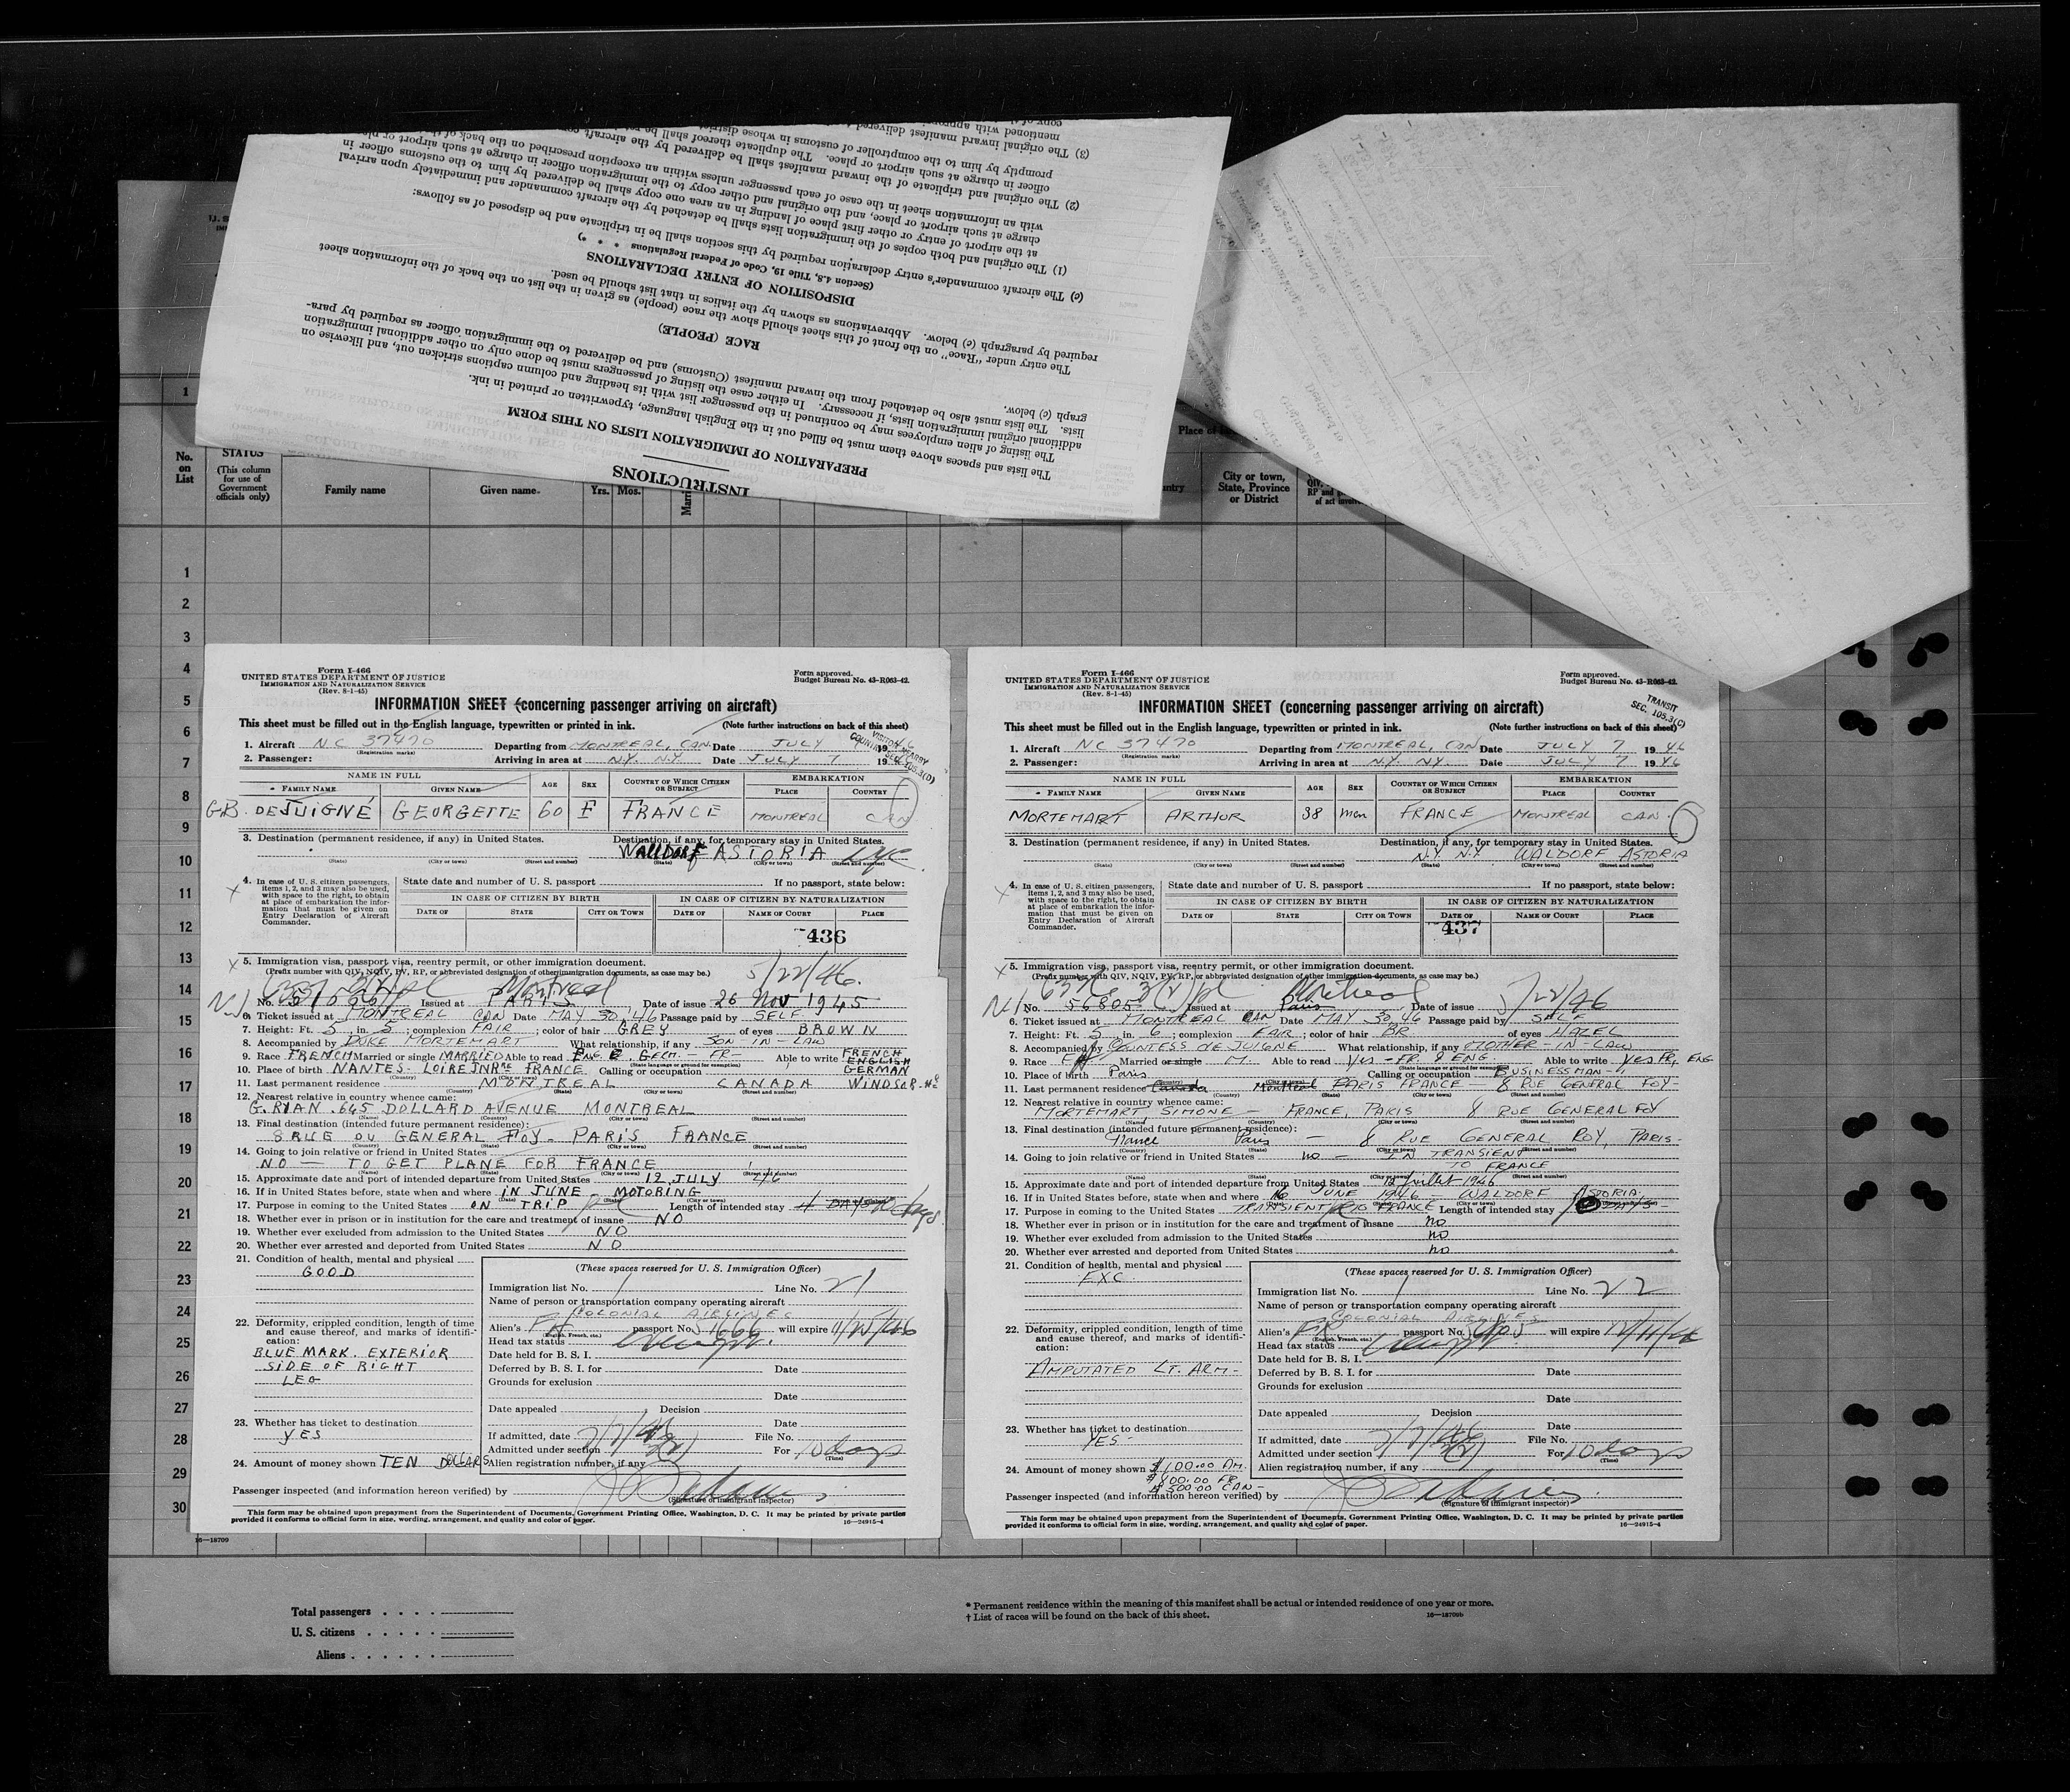 INSTRUCTIONS
PREPARATION OF IMMIGRATION LISTS ON THIS FORM
The lists and spaces above them must be filled out in the English language, typewritten or printed in ink.
The listing of alien employees may be continued in the passenger list with its heading and column captions stricken out, and likewise on
additional original immigration lists, if necessary. In either case the listing of passengers must be done only on other additional immigration
lists. The lists must also be detached from the inward manifest (Customs) and be delivered to the immigration officer as required by para-
graph (c) below.
RACE (PEOPLE)
The entry under "Race" on the front of this sheet should show the race (people) as given in the list on the back of the information sheet
required by paragraph (c) below. Abbreviations as shown by the italics in that list should be used.
DISPOSITION OF ENTRY DECLARATIONS
(Section 4.8, Title 19, Code of Federal Regulations * * *)
(c) The aircraft commander's entry declaration required by this section shall be in triplicate and be disposed of as follows:
(1) The original and both copies of the immigration lists shall be detached by the aircraft commander and immediately upon arrival
at the airport of entry or other first place of landing in an area one copy shall be delivered by him to the customs officer in
charge at such airport or place, and the original and other copy to the immigration officer in charge at such airport or place
with an information sheet in the case of each passenger unless within an exception prescribed on the back of
(2) The original and triplicate of the inward manifest shall be delivered by the aircraft
officer in charge at such airport or place. The duplicate thereof shall be
promptly by him to the comptroller of customs in whose district
(3) The original inward manifest delivered
mentioned with
copy of
1
No. on List
STATUS
(This column for use of Government officials only)
Family name
Given name
Yrs. Mos.
City or town, State, Province or District
1
2
3
4
5
6
7
8
9
10
11
12
13
14
15
16
17
18
19
20
21
22
23
24
25
26
27
28
29
30
Form I-466
UNITED STATES DEPARTMENT OF JUSTICE
IMMIGRATION AND NATURALIZATION SERVICE
(Rev. 8-1-45)
Form approved.
Budget Bureau No. 43-R063-42.
INFORMATION SHEET (concerning passenger arriving on aircraft)
This sheet must be filled out in the English language, typewritten or printed in ink. (Note further instructions on back of this sheet)
1. Aircraft NC 37470 Departing from MONTREAL, CAN. Date JULY
(Registration marks)
2. Passenger: Arriving in area at N.Y. N.Y. Date JULY 7 19
NAME IN FULL AGE SEX COUNTRY OF WHICH CITIZEN OR SUBJECT EMBARKATION
FAMILY NAME GIVEN NAME PLACE COUNTRY
DEJUIGNÉ GEORGETTE 60 F FRANCE MONTREAL CAN
3. Destination (permanent residence, if any) in United States. Destination, if any, for temporary stay in United States.
WALLDORF ASTORIA NYC
(State) (City or town) (Street and number) (State) (Street and number)
4. In case of U. S. citizen passengers, items 1, 2, and 3 may also be used, with space to the right, to obtain at place of embarkation the information that must be given on Entry Declaration of Aircraft Commander.
State date and number of U. S. passport If no passport, state below:
IN CASE OF CITIZEN BY BIRTH IN CASE OF CITIZEN BY NATURALIZATION
DATE OF STATE CITY OR TOWN DATE OF NAME OF COURT PLACE
436
5. Immigration visa, passport visa, reentry permit, or other immigration document.
(Prefix number with QIV, NQIV, PV, RP, or abbreviated designation of other immigration documents, as case may be.)
5/22/46.
Montreal
No. Issued at PARIS Date of issue 26 Nov 1945
6. Ticket issued at MONTREAL CAN Date MAY 30, 46 Passage paid by SELF
7. Height: Ft. 5, in. 5; complexion FAIR; color of hair GREY of eyes BROWN
8. Accompanied by DUKE MORTEMART What relationship, if any SON-IN-LAW
9. Race FRENCH Married or single MARRIED Able to read ENG. GERM. - FR- Able to write FRENCH ENGLISH GERMAN
10. Place of birth NANTES - LOIRE INRRE FRANCE Calling or occupation
11. Last permanent residence MONTREAL CANADA WINDSOR
12. Nearest relative in country whence came:
G. RYAN. 645 DOLLARD AVENUE MONTREAL
13. Final destination (intended future permanent residence):
8 RUE DU GENERAL FOY - PARIS FRANCE
14. Going to join relative or friend in United States
NO — TO GET PLANE FOR FRANCE
15. Approximate date and port of intended departure from United States 12 JULY 46
16. If in United States before, state when and where IN JUNE MOTORING
17. Purpose in coming to the United States ON TRIP Length of intended stay 4 DAYS 10 days
18. Whether ever in prison or in institution for the care and treatment of insane NO
19. Whether ever excluded from admission to the United States NO
20. Whether ever arrested and deported from United States NO
21. Condition of health, mental and physical
GOOD
22. Deformity, crippled condition, length of time and cause thereof, and marks of identification:
BLUE MARK. EXTERIOR
SIDE OF RIGHT
LEG
23. Whether has ticket to destination
YES
24. Amount of money shown TEN DOLLARS
(These spaces reserved for U. S. Immigration Officer)
Immigration list No. 1 Line No. 21
Name of person or transportation company operating aircraft
COLONIAL AIRLINES
Alien's FR passport No. 1666 will expire 11/25/46
(English, French, etc.)
Head tax status
Date held for B. S. I.
Deferred by B. S. I. for Date
Grounds for exclusion
Date
Date appealed Decision
Date
If admitted, date 7/7/46 File No.
Admitted under section 3(2) For 10 days
(Time)
Alien registration number, if any
Passenger inspected (and information hereon verified) by
(Signature of immigrant inspector)
This form may be obtained upon prepayment from the Superintendent of Documents, Government Printing Office, Washington, D. C. It may be printed by private parties
provided it conforms to official form in size, wording, arrangement, and quality and color of paper.
16—24915-4
Form I-466
UNITED STATES DEPARTMENT OF JUSTICE
IMMIGRATION AND NATURALIZATION SERVICE
(Rev. 8-1-45)
Form approved.
Budget Bureau No. 43-R063-42.
TRANSIT
SEC. 105.3(C)
INFORMATION SHEET (concerning passenger arriving on aircraft)
This sheet must be filled out in the English language, typewritten or printed in ink. (Note further instructions on back of this sheet)
1. Aircraft NC 37470 Departing from MONTREAL, CAN Date JULY 7 1946
(Registration marks)
2. Passenger: Arriving in area at N.Y. N.Y. Date JULY 7 1946
NAME IN FULL AGE SEX COUNTRY OF WHICH CITIZEN OR SUBJECT EMBARKATION
FAMILY NAME GIVEN NAME PLACE COUNTRY
MORTEMART ARTHUR 38 men FRANCE MONTREAL CAN.
3. Destination (permanent residence, if any) in United States. Destination, if any, for temporary stay in United States.
N.Y. N.Y. WALDORF ASTORIA
(State) (City or town) (Street and number) (State) (City or town) (Street and number)
4. In case of U. S. citizen passengers, items 1, 2, and 3 may also be used, with space to the right, to obtain at place of embarkation the information that must be given on Entry Declaration of Aircraft Commander.
State date and number of U. S. passport If no passport, state below:
IN CASE OF CITIZEN BY BIRTH IN CASE OF CITIZEN BY NATURALIZATION
DATE OF STATE CITY OR TOWN DATE OF NAME OF COURT PLACE
437
5. Immigration visa, passport visa, reentry permit, or other immigration document.
(Prefix number with QIV, NQIV, PV, RP, or abbreviated designation of other immigration documents, as case may be.)
Montreal 5/22/46
No. 56805 Issued at Paris Date of issue
6. Ticket issued at MONTREAL CAN Date MAY 30, 46 Passage paid by SELF
7. Height: Ft. 5, in. 6; complexion FAIR; color of hair BR of eyes HAZEL
8. Accompanied by COUNTESS DE JUIGNE What relationship, if any MOTHER-IN-LAW
9. Race Married or single M. Able to read Yes - FR. & ENG Able to write Yes FR, ENG
10. Place of birth Paris Calling or occupation BUSINESSMAN
11. Last permanent residence Canada Montreal PARIS FRANCE — 8 RUE GENERAL FOY-
12. Nearest relative in country whence came:
MORTEMART SIMONE — FRANCE, PARIS 8 RUE GENERAL FOY
13. Final destination (intended future permanent residence):
France Paris — 8 RUE GENERAL ROY, PARIS-
14. Going to join relative or friend in United States no — IN TRANSIENT
TO FRANCE
15. Approximate date and port of intended departure from United States 12 Juillet 1946
16. If in United States before, state when and where 16 JUNE 1946 WALDORF ASTORIA
17. Purpose in coming to the United States TRANSIENT TO FRANCE Length of intended stay DAYS-
18. Whether ever in prison or in institution for the care and treatment of insane no
19. Whether ever excluded from admission to the United States no
20. Whether ever arrested and deported from United States no
21. Condition of health, mental and physical
EXC.
22. Deformity, crippled condition, length of time and cause thereof, and marks of identification:
AMPUTATED LT. ARM-
23. Whether has ticket to destination
YES-
24. Amount of money shown $100.00 AM.
$800.00 FR.
$500.00 CAN-
(These spaces reserved for U. S. Immigration Officer)
Immigration list No. 1 Line No. 22
Name of person or transportation company operating aircraft
COLONIAL AIRLINES
Alien's FR passport No. will expire
(English, French, etc.)
Head tax status
Date held for B. S. I.
Deferred by B. S. I. for Date
Grounds for exclusion
Date
Date appealed Decision
Date
If admitted, date 7/7/46 File No.
Admitted under section 3(2) For 10 days
(Time)
Alien registration number, if any
Passenger inspected (and information hereon verified) by
(Signature of immigrant inspector)
This form may be obtained upon prepayment from the Superintendent of Documents, Government Printing Office, Washington, D. C. It may be printed by private parties
provided it conforms to official form in size, wording, arrangement, and quality and color of paper.
16—24915-4
16—18709
Total passengers
U. S. citizens
Aliens
* Permanent residence within the meaning of this manifest shall be actual or intended residence of one year or more.
† List of races will be found on the back of this sheet.
16—18709b